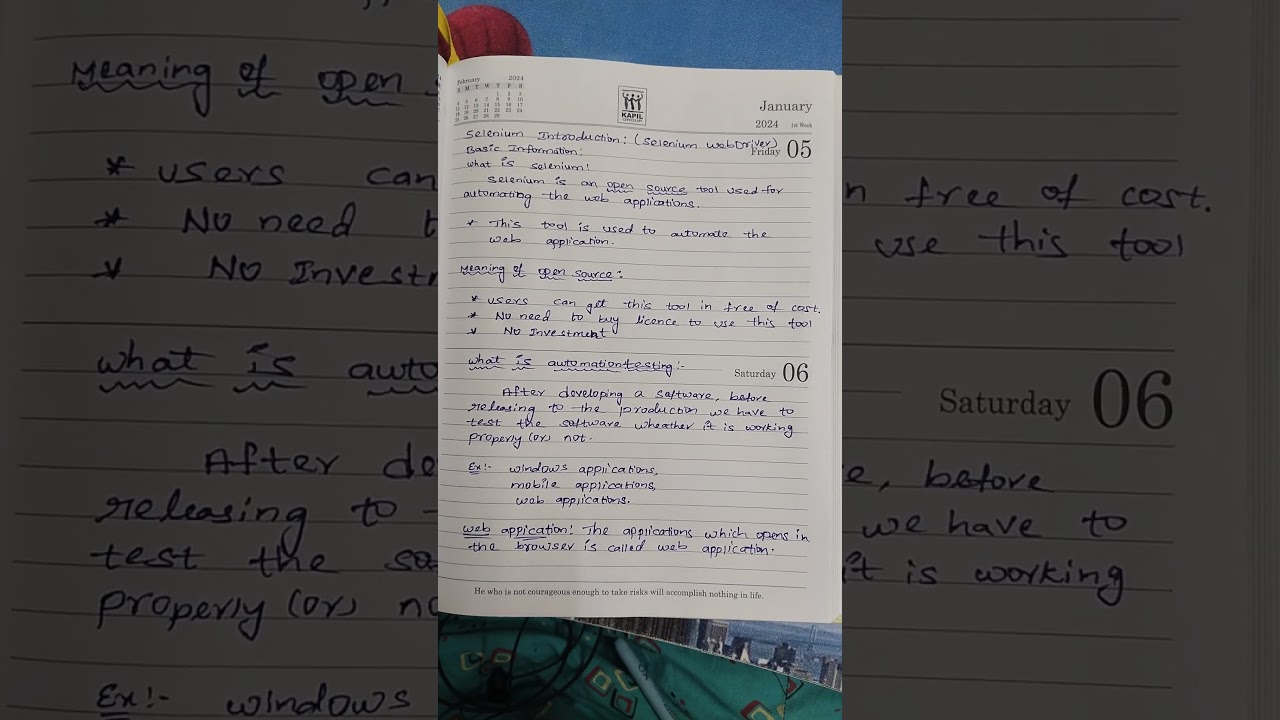 February 2024
S M T W T F S
1 2 3
4 5 6 7 8 9 10
11 12 13 14 15 16 17
18 19 20 21 22 23 24
25 26 27 28 29
KAPIL
GROUP
January
2024 1st Week
Friday 05
Selenium Introduction: (Selenium WebDriver)
Basic Information:
what is selenium!
Selenium is an open source tool used for
automating the web applications.
* This tool is used to automate the
web application.
Meaning of open source:
* users can get this tool in free of cost.
* No need to buy licence to use this tool
* No Investment
what is automation testing:-
Saturday 06
After developing a software, before
releasing to the production we have to
test the software wheather it is working
properly (or) not.
Ex:- windows applications,
mobile applications,
web applications.
web appication: The applications which opens in
the browser is called web application.
He who is not courageous enough to take risks will accomplish nothing in life.